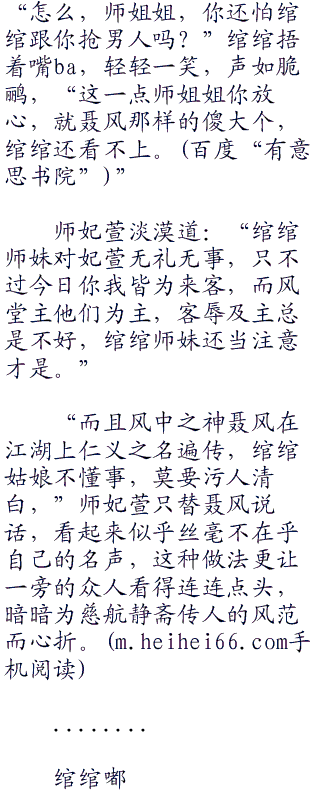 “怎么，师姐姐，你还怕绾
绾跟你抢男人吗？”绾绾捂
着嘴ba，轻轻一笑，声如脆
鹂，“这一点师姐姐你放
心，就聂风那样的傻大个，
绾绾还看不上。(百度“有意
思书院”)”
师妃萱淡漠道：“绾绾
师妹对妃萱无礼无事，只不
过今日你我皆为来客，而风
堂主他们为主，客辱及主总
是不好，绾绾师妹还当注意
才是。”
“而且风中之神聂风在
江湖上仁义之名遍传，绾绾
姑娘不懂事，莫要污人清
白，”师妃萱只替聂风说
话，看起来似乎丝毫不在乎
自己的名声，这种做法更让
一旁的众人看得连连点头，
暗暗为慈航静斋传人的风范
而心折。(m.heihei66.com手
机阅读)
........
绾绾嘟